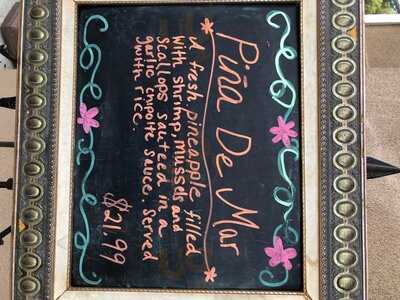 Piña De Mar
*A fresh pineapple filled
with shrimp, mussels and
scallops sauteed in a
garlic chipotle sauce. Served
with rice.
$21.99